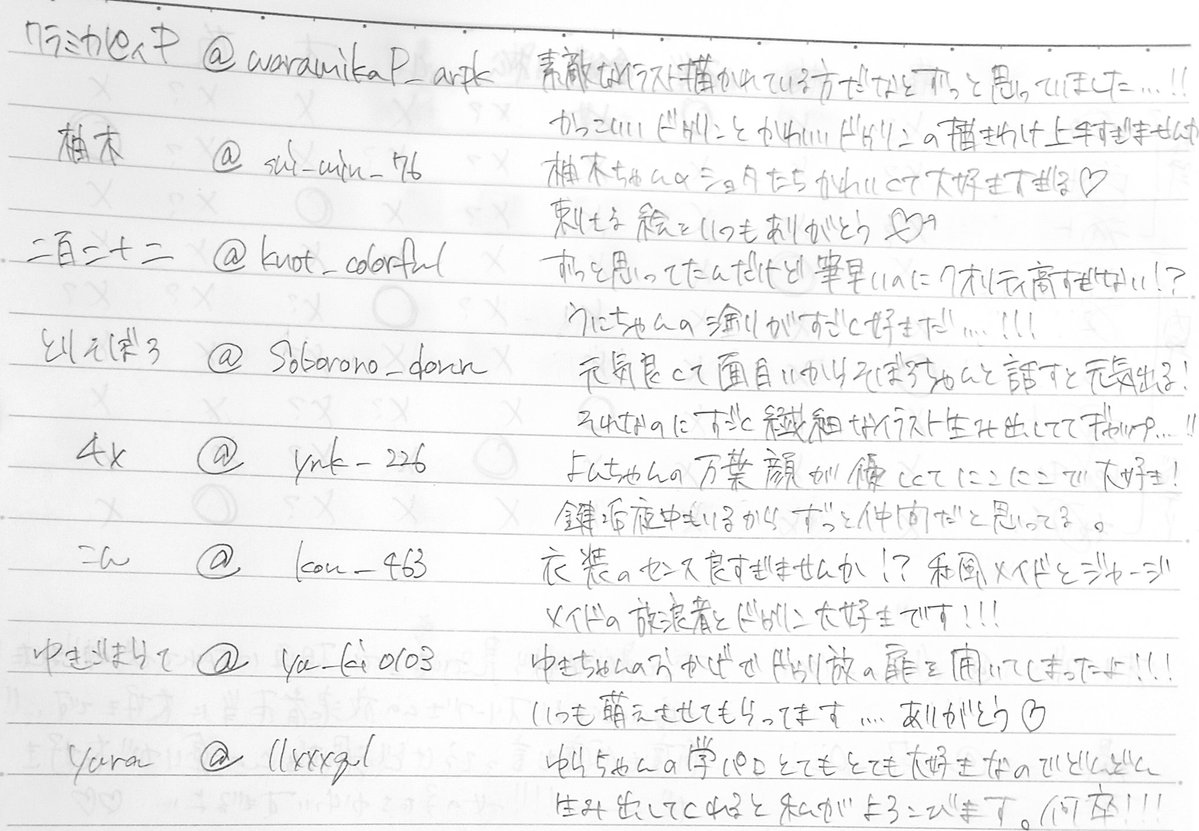 ワラミカ @waramikaP_arpk 素敵なイラスト描かれている方だなとずっと思っていました…!!
かっこいいドゥリンとかわいいドゥリンの描きわけ上手すぎませんか
柚木 @sui_win_76 柚木ちゃんのショタたちかわいくて大好きすぎる♡
刺さる絵をいつもありがとう♡
二百二十二 @kuot_colorful ずっと思ってたんだけど筆早いのにクオリティ高すぎない!?
うにちゃんの塗りがすごく好きだ…!!!
とりそぼろ @Soborono_donn 元気良くて面白いからそぼろちゃんと話すと元気出る!
それなのにすごく繊細なイラスト生み出しててギャップ…!!
4x @ynk_226 よんちゃんの万葉顔が優しくてにこにこで大好き!
鍵垢夜中もいるからずっと仲間だと思ってる。
こん @kon_463 衣装のセンス良すぎませんか!? 和風メイドとジャージ
メイドの放浪者とドゥリン大好きです!!!
ゆきだまりて @yu_ki0103 ゆきちゃんのおかげでドゥリ放の扉を開いてしまったよ!!!
いつも萌えさせてもらってます…. ありがとう♡
yura @llxxxql ゆらちゃんの学パロとてもとても大好きなのでどんどん
生み出してくれると私がよろこびます。何卒!!!